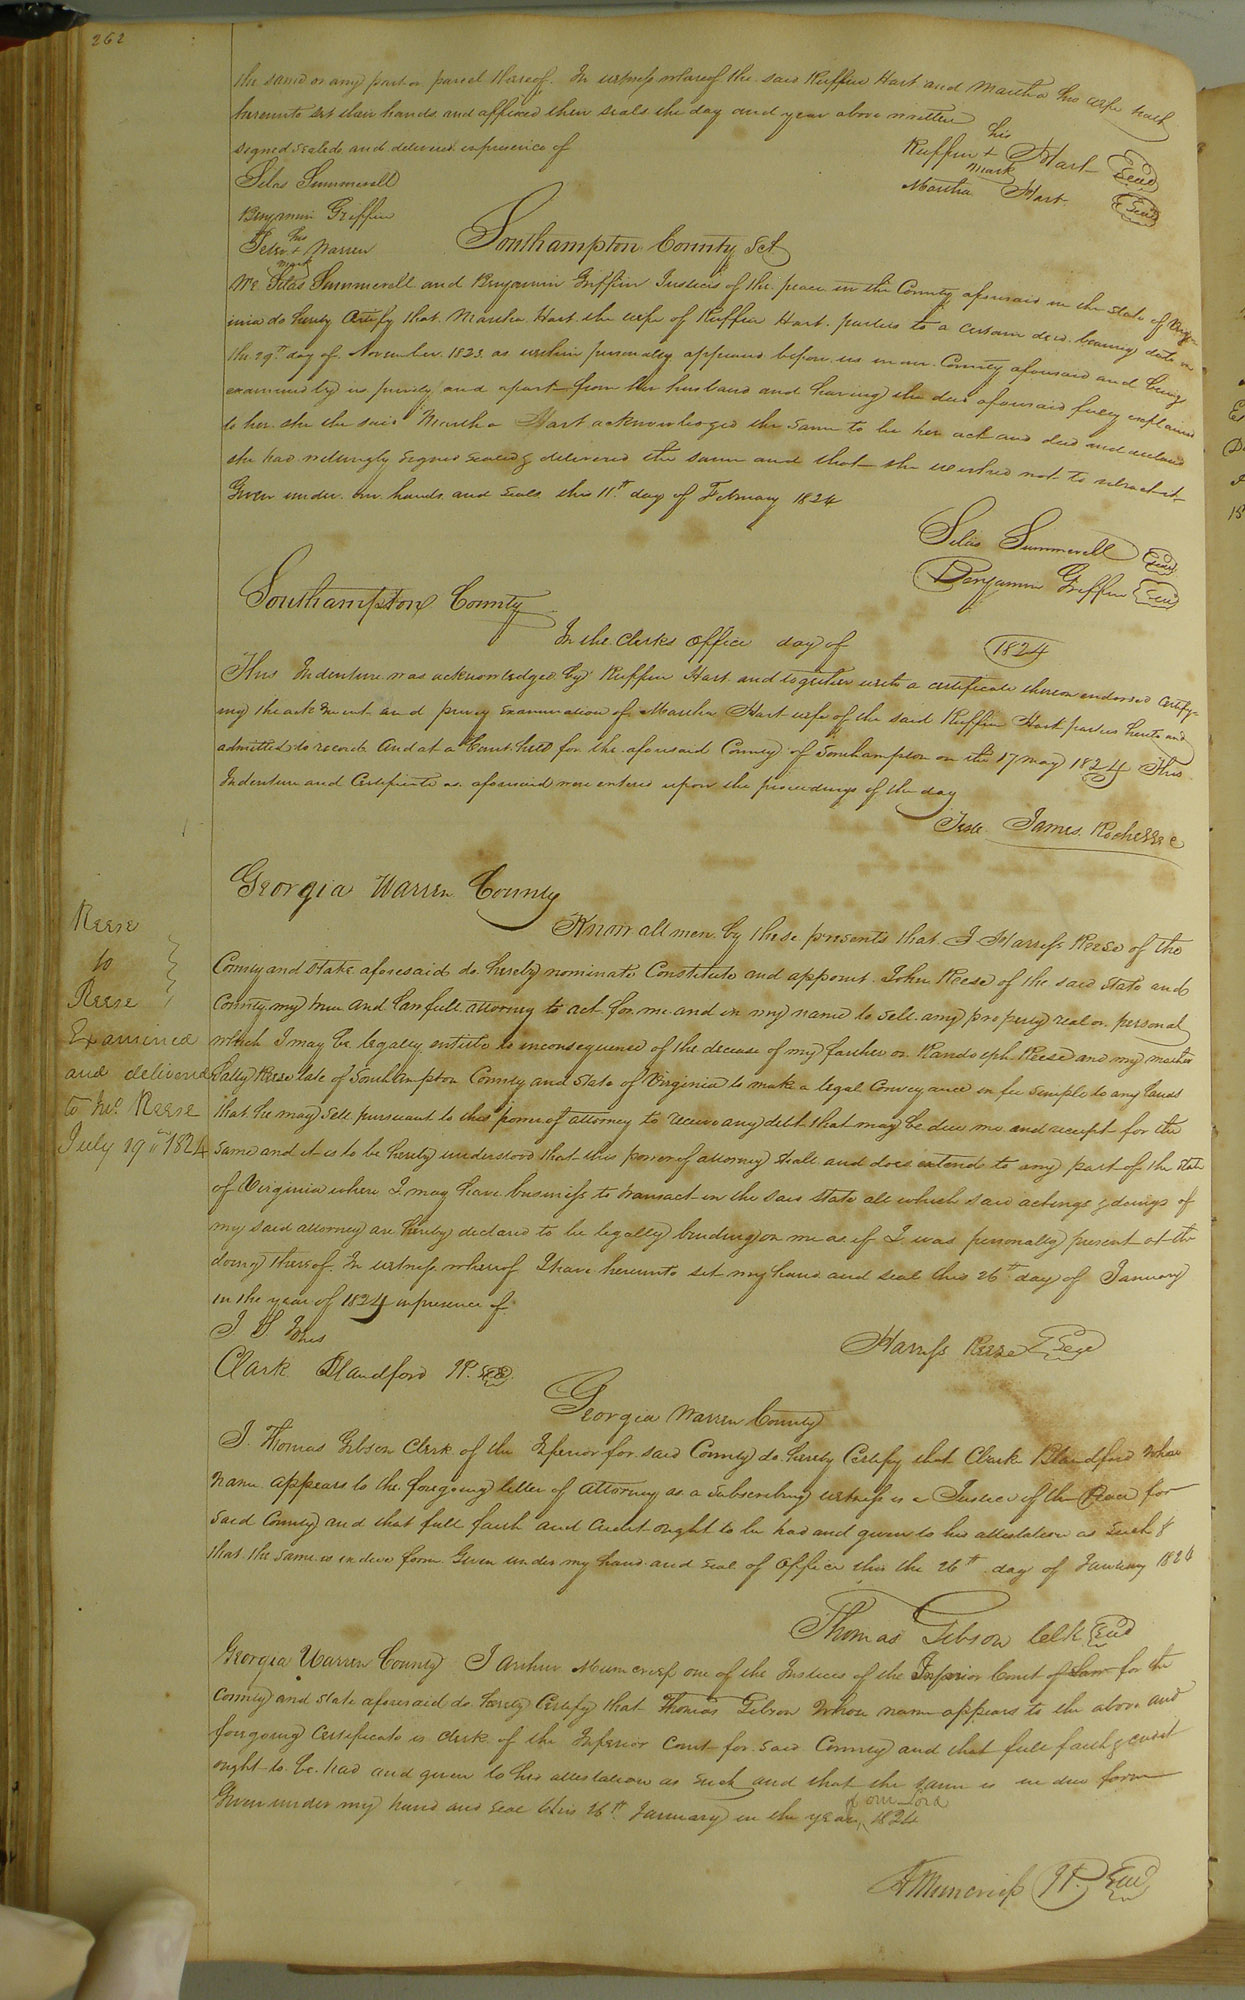 262
the same or any part or parcel thereof. In witness whereof the said Ruffin Hart and Martha his wife hath
hereunto set their hands and affixed their seals the day and year above written
signed sealed and delivered in presence of
his
Ruffin + Hart Seal
mark
Martha Hart Seal
Silas Summerell
Benjamin Griffin
his
Peter + Warren
mark
Southampton County Sct
We Silas Summerell and Benjamin Griffin Justices of the peace in the County aforesaid in the state of Virg
inia do hereby Certify that Martha Hart the wife of Ruffin Hart parties to a certain deed bearing date on
the 29th day of November 1823 as within personally appeared before us in our County aforesaid and being
examined by us privily and apart from her husband and having the deed aforesaid fully explained
to her she the said Martha Hart acknowledged the same to be her act and deed and declared
she had willingly signed sealed & delivered the same and that she wished not to retract it
Given under our hands and seals this 11th day of February 1824
Silas Summerell Seal
Benjamin Griffin Seal
Southampton County
In the Clerks office day of 1824
This Indenture was acknowledged by Ruffin Hart and together with a certificate thereon endorsed certify-
ing the acknment and privy examination of Martha Hart wife of the said Ruffin Hart parties hereto and
admitted to record And at a Court held for the aforesaid County of Southampton on the 17 may 1824 This
Indenture and Certificate as aforesaid were entered upon the proceedings of the day
Teste James Rochelle C
Reese
to
Reese
Examined
and delivered
to Jno. Reese
July 19th 1824
Georgia Warren County
Know all men by these presents that I Harress Reese of the
County and state aforesaid do hereby nominate Constitute and appoint John Reese of the said state and
County my true and lawfull attorney to act for me and in my name to sell any property real or personal
which I may be legally entitled to in consequence of the decease of my farther on Randolph Reese and my mother
Sally Reese late of Southampton County and State of Virginia to make a legal Conveyance in fee simple to any lands
that he may sell pursuant to this power of attorney to receive any debt that may be due me and receipt for the
same and it is to be hereby understood that this power of attorney shall and does extend to any part of the state
of Virginia where I may have business to transact in the said state all which said actings & doings of
my said attorney are hereby declared to be legally binding on me as if I was personally present at the
doing thereof. In witness whereof I have hereunto set my hand and seal this 26th day of January
in the year of 1824 in presence of
Harress Reese Seal
Clark Blandford JP. Seal
Georgia Warren County
I Thomas Gibson Clerk of the Inferior for said County do hereby Certify that Clark Blandford whose
name appears to the foregoing letter of attorney as a subscribing witness is a Justice of the Peace for
said County and that full faith and Credit ought to be had and given to his attestation as such &
that the same is in due form Given under my hand and seal of Office this the 26th day of January 1824
Thomas Gibson Clk Seal
Georgia Warren County I Arthur Muncrief one of the Justices of the Inferior Court of Law for the
County and state aforesaid do hereby Certify that Thomas Gibson whose name appears to the above and
foregoing Certificate is clerk of the Inferior Court for said County and that full faith & credit
ought to be had and given to his attestation as such and that the same is in due form
of our Lord
Given under my hand and seal this 26th January in the year 1824
A Muncrief JP. Seal